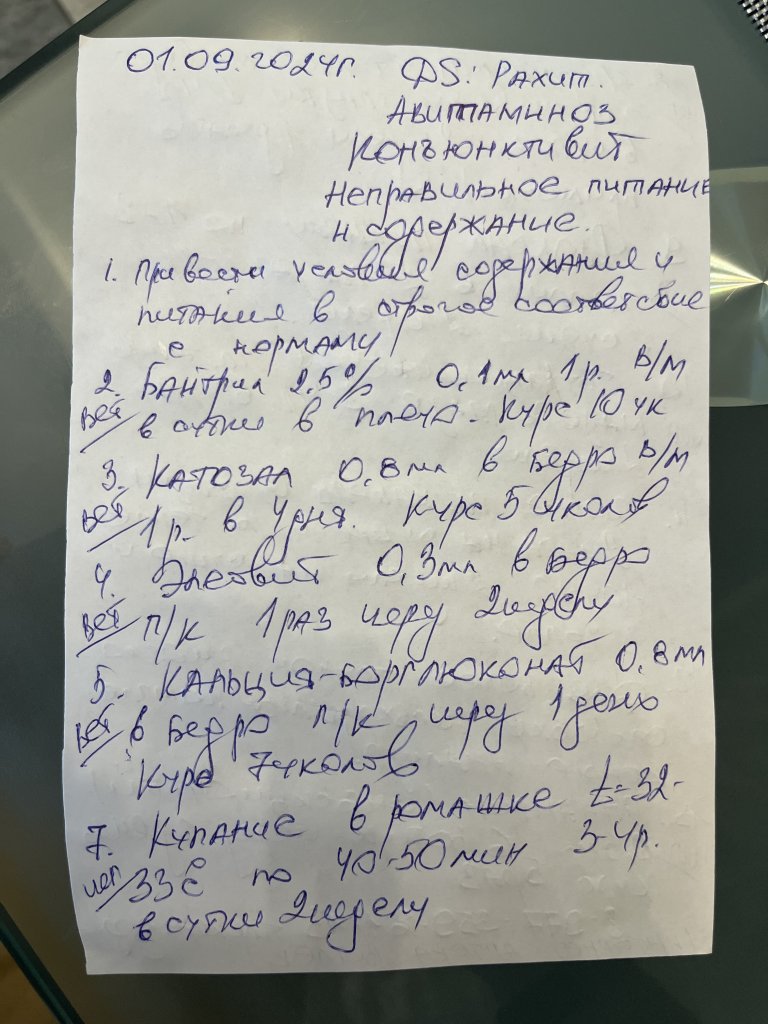 01.09.2024г. DS: Рахит.
Авитаминоз
Конъюнктивит
Неправильное питание
и содержание.
1. Привести условия содержания и
питания в строгое соответсвие
с нормами
2. Байтрил 2,5% 0,1мл 1р. в/м
вет в сутки в плечо. Курс 10 ук
3. Катозал 0,8мл в бедро в/м
вет 1р. в 4дня. Курс 5 уколов
4. Элеовит 0,3мл в бедро
вет п/к 1раз 2недели
5. Кальция-борглюконат 0,8мл
вет в бедро п/к 1 день
Курс 7уколов
7. Купание в ромашке t=32-
чел 33°C по 40-50мин 3-4р.
в сутки 2недели